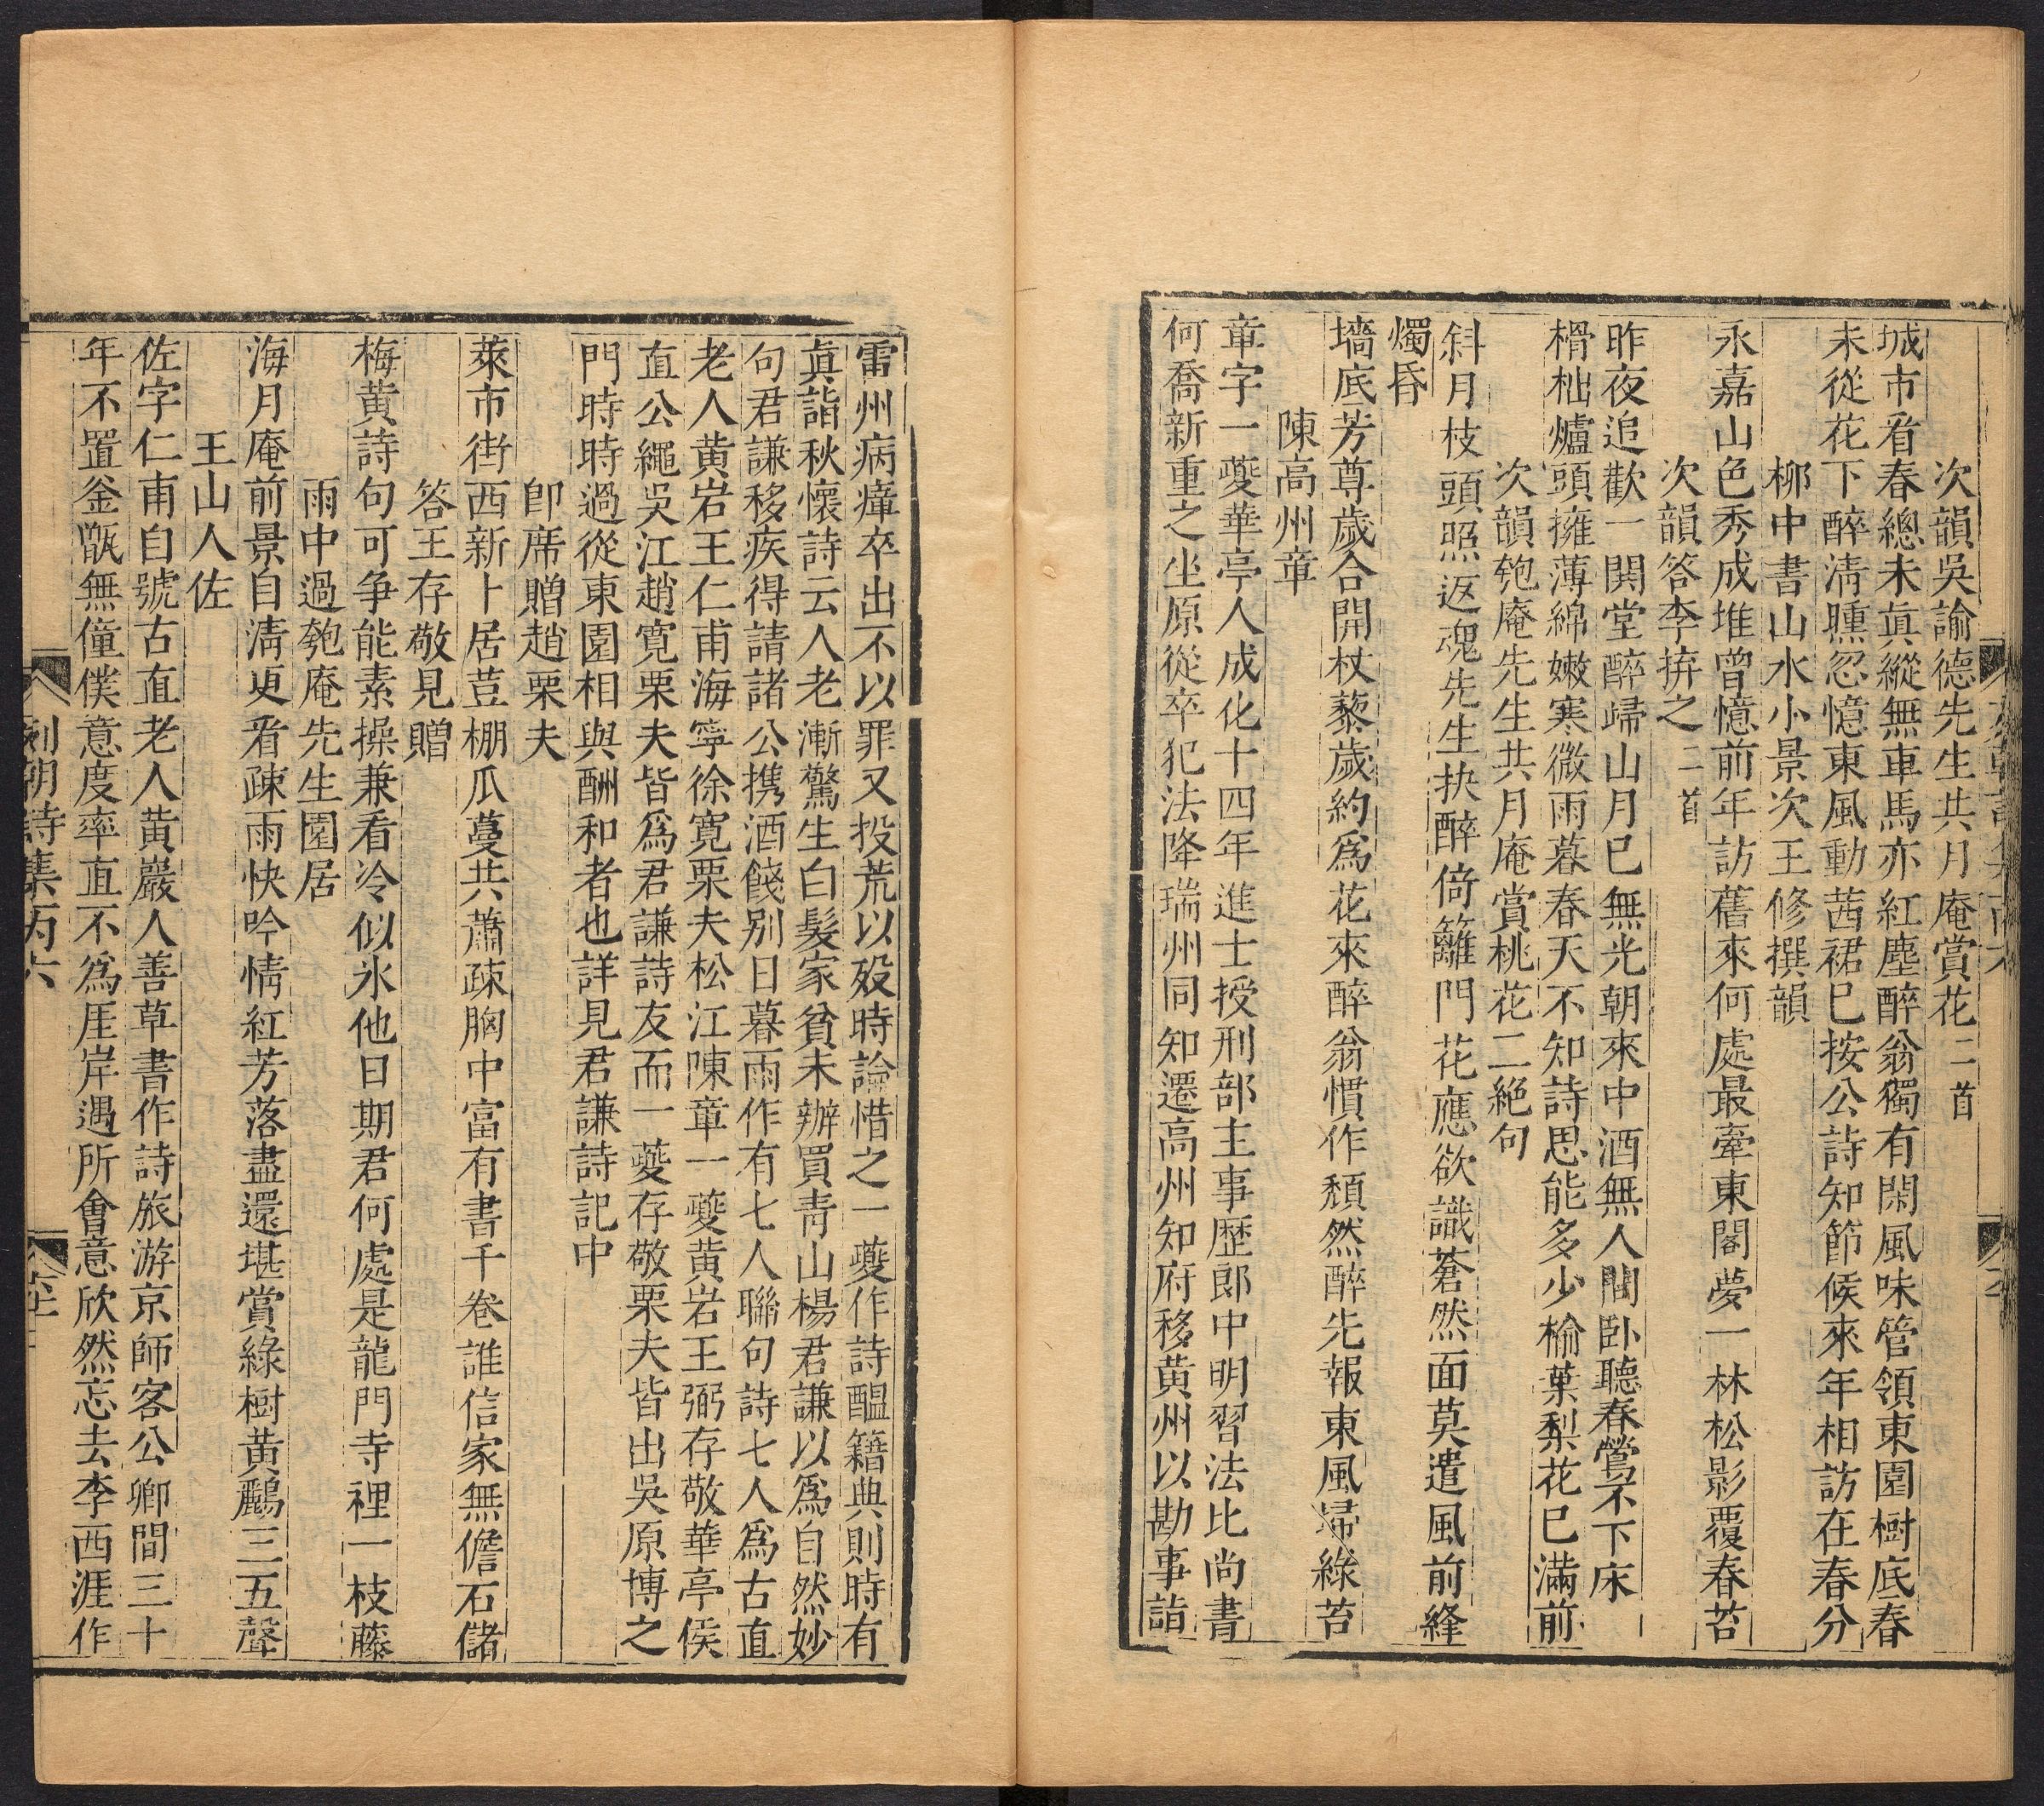 次韻吳諭德先生共月庵賞花二首
城市看春總未眞縱無車馬亦紅塵醉翁獨有閑風味管領東園樹底春
未從花下醉淸醺忽憶東風動茜裙巳按公詩知節候來年相訪在春分
柳中書山水小景次王修撰韻
永嘉山色秀成堆曾憶前年訪舊來何處最牽東閣夢一林松影覆春苔
次韻答李㧱之二首
昨夜追歡一閧堂醉歸山月巳無光朝來中酒無人問卧聽春鶯不下床
榾柮爐頭擁薄綿嫩寒微雨暮春天不知詩思能多少楡葉梨花巳滿前
次韻匏庵先生共月庵賞桃花二絶句
斜月枝頭照返魂先生抉醉倚籬門花應欲識蒼然面莫遣風前絳
燭昏
墻底芳尊歲合開杖藜歲約爲花來醉翁慣作頹然醉先報東風掃綠苔
陳高州章
章字一夔華亭人成化十四年進士授刑部主事歷郎中明習法比尚書
何喬新重之坐原從卒犯法降瑞州同知遷高州知府移黃州以勘事詣
雷州病瘴卒出不以罪又投荒以歿時論惜之一夔作詩醖籍典則時有
眞詣秋懷詩云人老漸驚生白髮家貧未辦買靑山楊君謙以爲自然妙
句君謙移疾得請諸公携酒餞别日暮雨作有七人聯句詩七人爲古直
老人黃岩王仁甫海寧徐寬栗夫松江陳章一夔黃岩王弼存敬華亭侯
直公繩吳江趙寬栗夫皆爲君謙詩友而一夔存敬栗夫皆出吳原博之
門時時過從東園相與酬和者也詳見君謙詩記中
卽席贈趙栗夫
萊市街西新卜居荳棚瓜蔓共蕭疎胸中富有書千卷誰信家無儋石儲
答王存敬見贈
梅黃詩句可争能素操兼看冷似氷他日期君何處是龍門寺裡一枝藤
雨中過匏庵先生園居
海月庵前景自淸更看疎雨快吟情紅芳落盡還堪賞綠樹黃鸝三五聲
王山人佐
佐字仁甫自號古直老人黃巖人善草書作詩旅游京師客公卿間三十
年不置釜甑無僮僕意度率直不爲厓岸遇所會意欣然忘去李西涯作
列朝詩集丙六